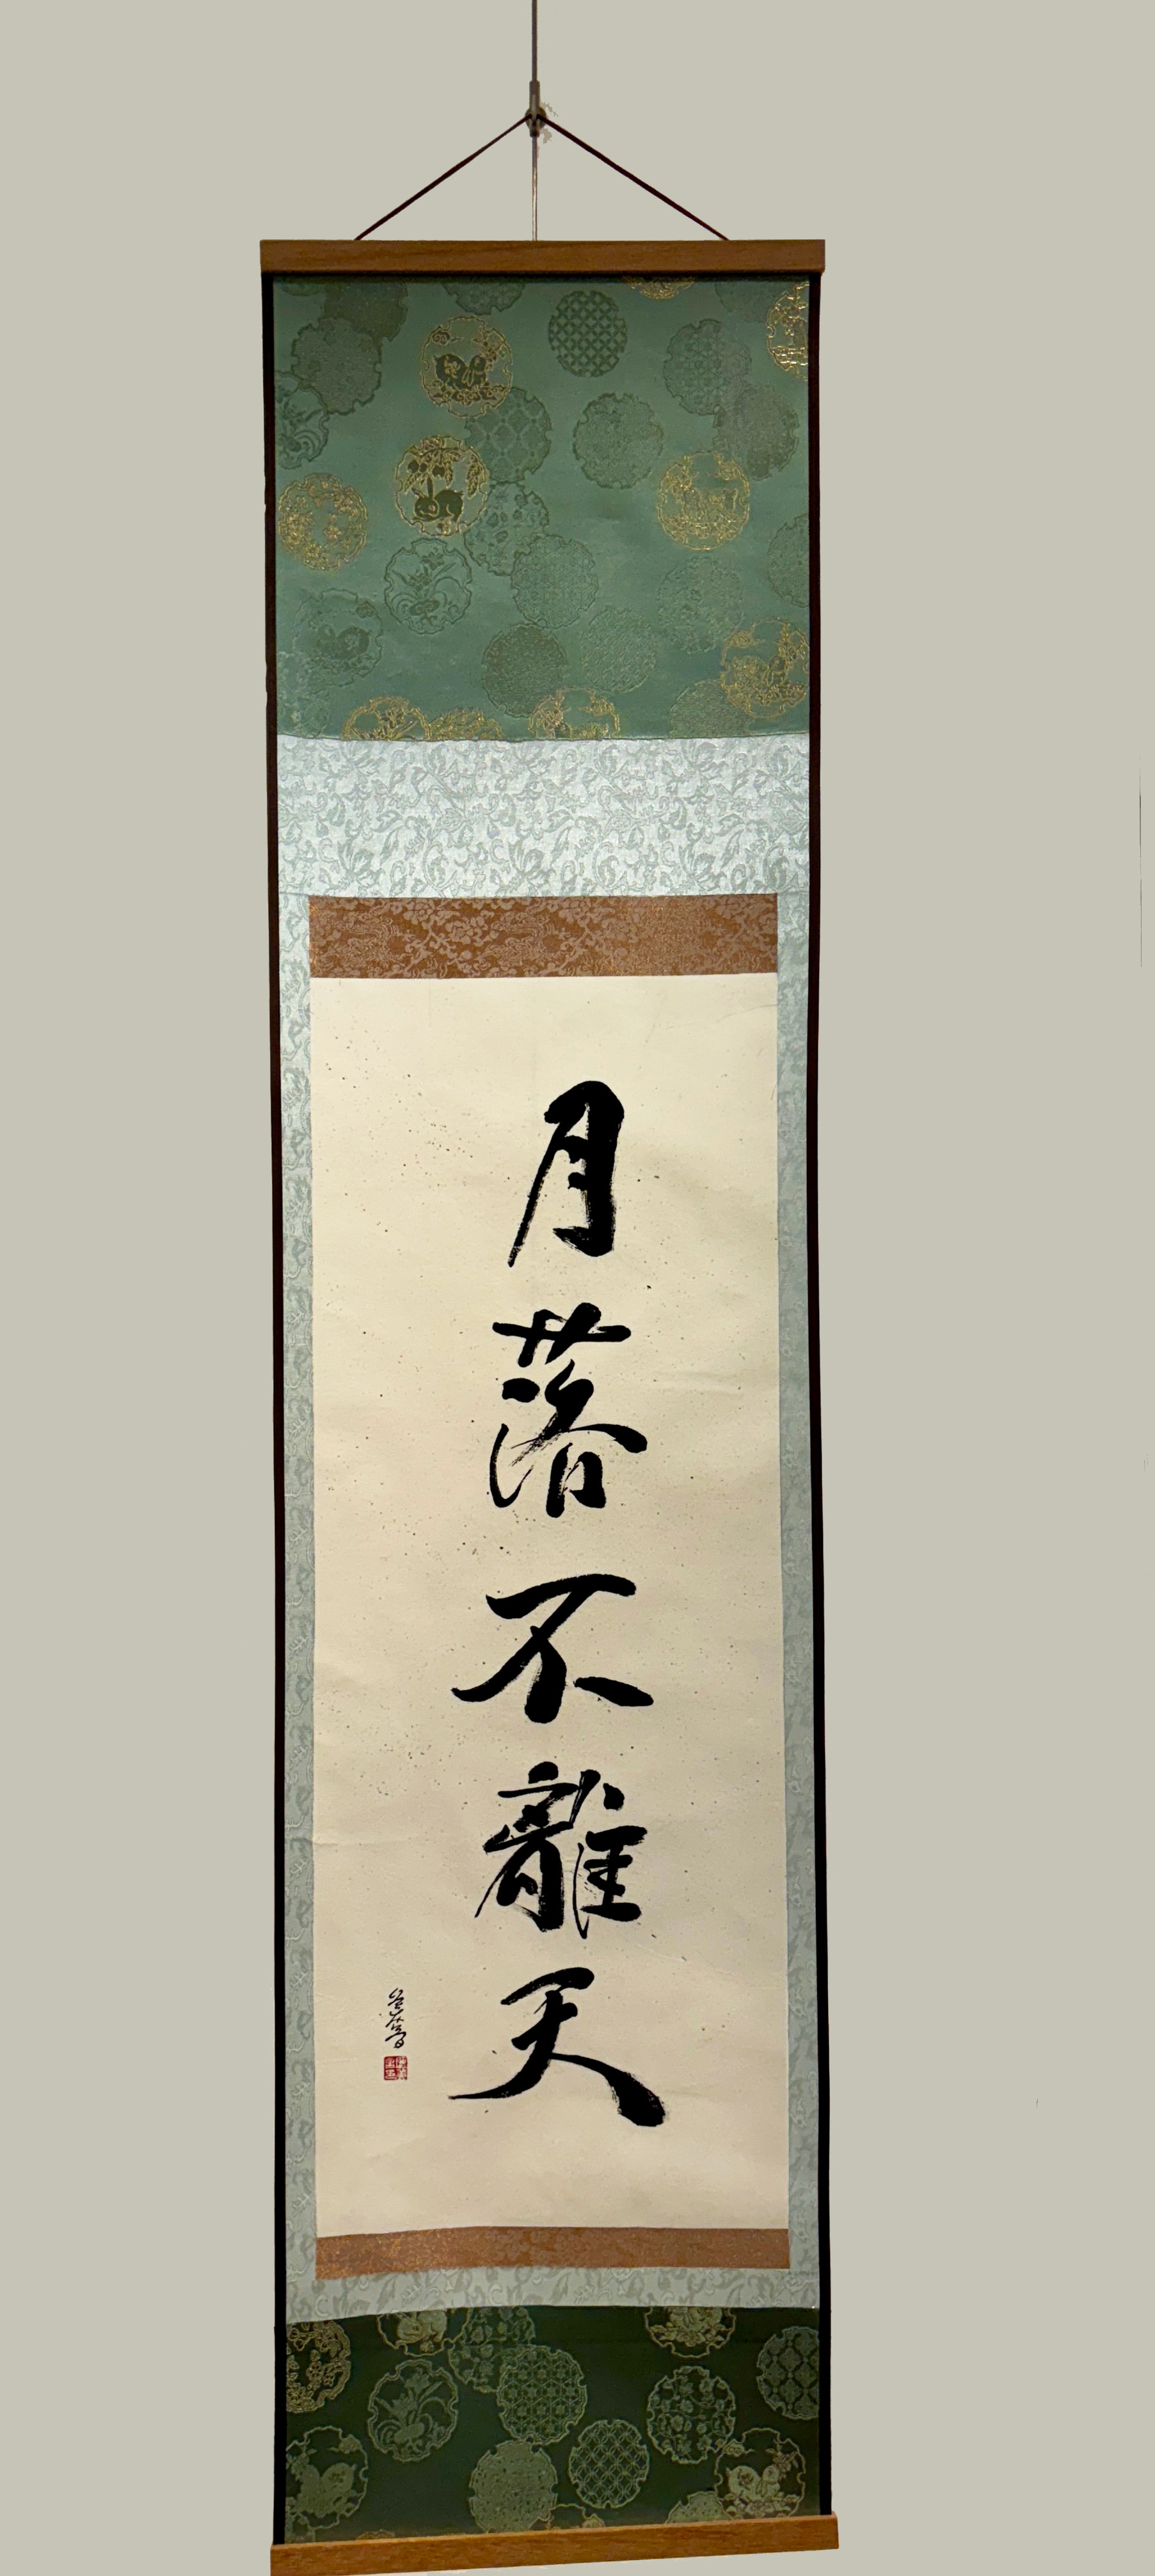 月落不離天